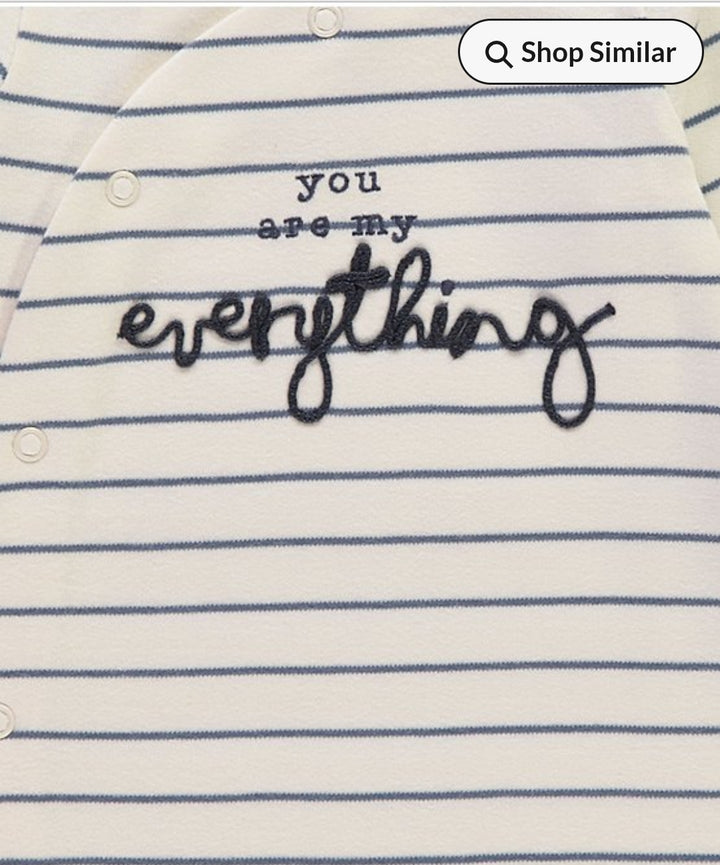 Shop Similar
you
are my
everything